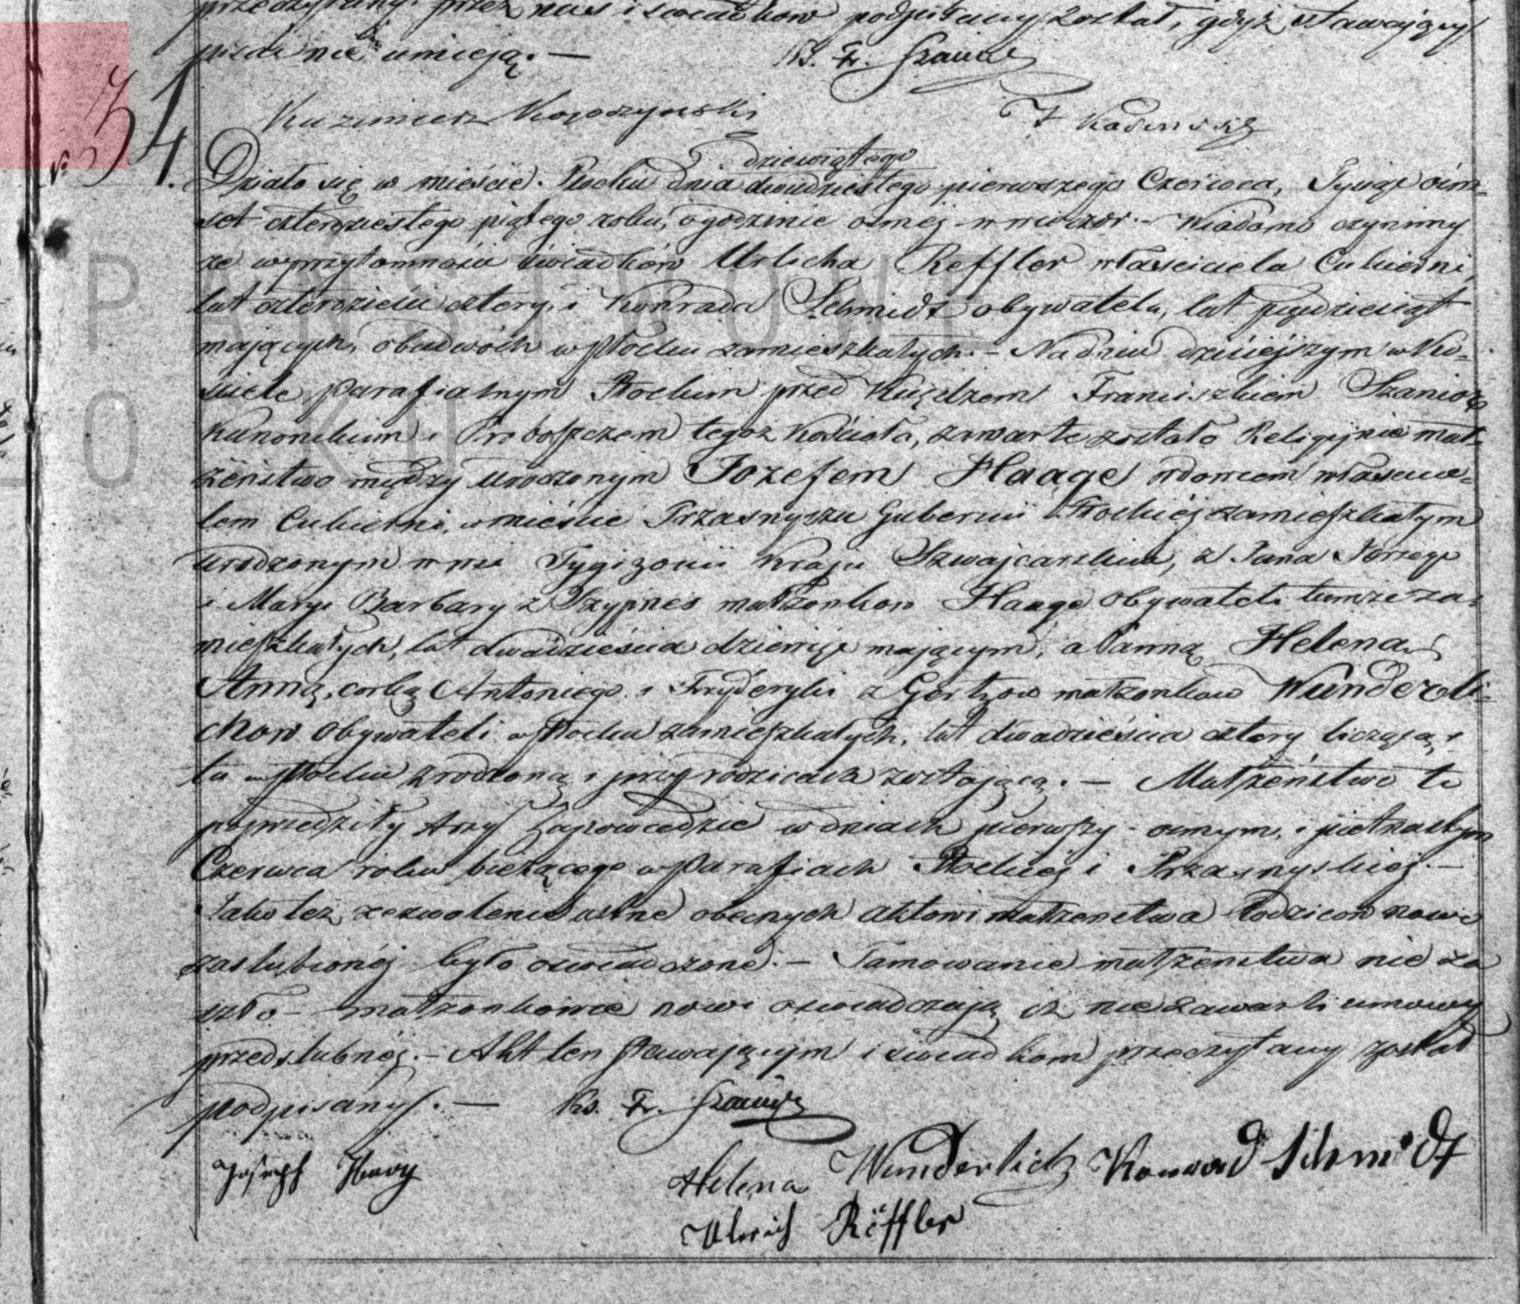 przeczytany przez nas i świadków podpisany został, gdyż stawający
pisać nie umieją. — Ks. Fr. Szaniор
Kazimierz Koroszynski
J Kosinski
№ 34.
dziewiątego
Działo się w mieście Płocku dnia dwudziestego pierwszego Czerwca, Tysiąc ośm-
set czterdziestego piątego roku, o godzinie osmej w wieczór. — Wiadomo czynimy
że w przytomności świadków Urlicha Reffler właściciela Cukierni,
lat czterdzieści cztery, i Konrada Schmidt obywatela, lat pięćdziesiąt
mających, obudwóch w Płocku zamieszkałych. — Na dniu dzisiejszym w Ko-
ściele parafialnym Płockim przed Księdzem Franciszkiem Szanior
Kanonikiem i Proboszczem tegoż Kościoła, zawarte zostało Religijnie mał-
żeństwo między urodzonym Jozefem Haage wdowcem właścicie-
lem Cukierni, w mieście Przasnyszu Gubernii Płockiéj zamieszkałym
urodzonym w wsi Tygizonii Kraju Szwajcarskim, z Jana Jerzego
i Maryi Barbary z Szypnes małżonków Haage obywateli tamże za-
mieszkałych, lat dwadzieścia dziewięć mającym, a Panną Heleną
Anną, corką Antoniego i Fryderyki z Gertzow małżonkow Wunderli-
chow Obywateli w Płocku zamieszkałych, lat dwadzieścia cztery liczącą,
tu w Płocku zrodzoną i przy rodzicach zostającą. — Małżeństwo to
poprzedziły trzy Zapowiedzie w dniach pierwszy - osmym, i piętnastym
Czerwca roku bieżącego w parafiach Płockiéj i Przasnyskiéj. —
Jako też zezwolenie ustne obecnych aktowi małżenstwa Rodzicow nowo
zaslubionéj było oswiadczone. — Tamowanie małżenstwa nie za
szło — małżonkowie nowi oswiadczają, iż nie zawarli umowy
przedslubnéj. — Akt ten stawającym i swiadkom przeczytany został
podpisany. — Ks. Fr. Szanior
Joseph Haag
Helena Wunderlich Konrad Schmidt
Ulrich Röffler
PAŃSTWOWE